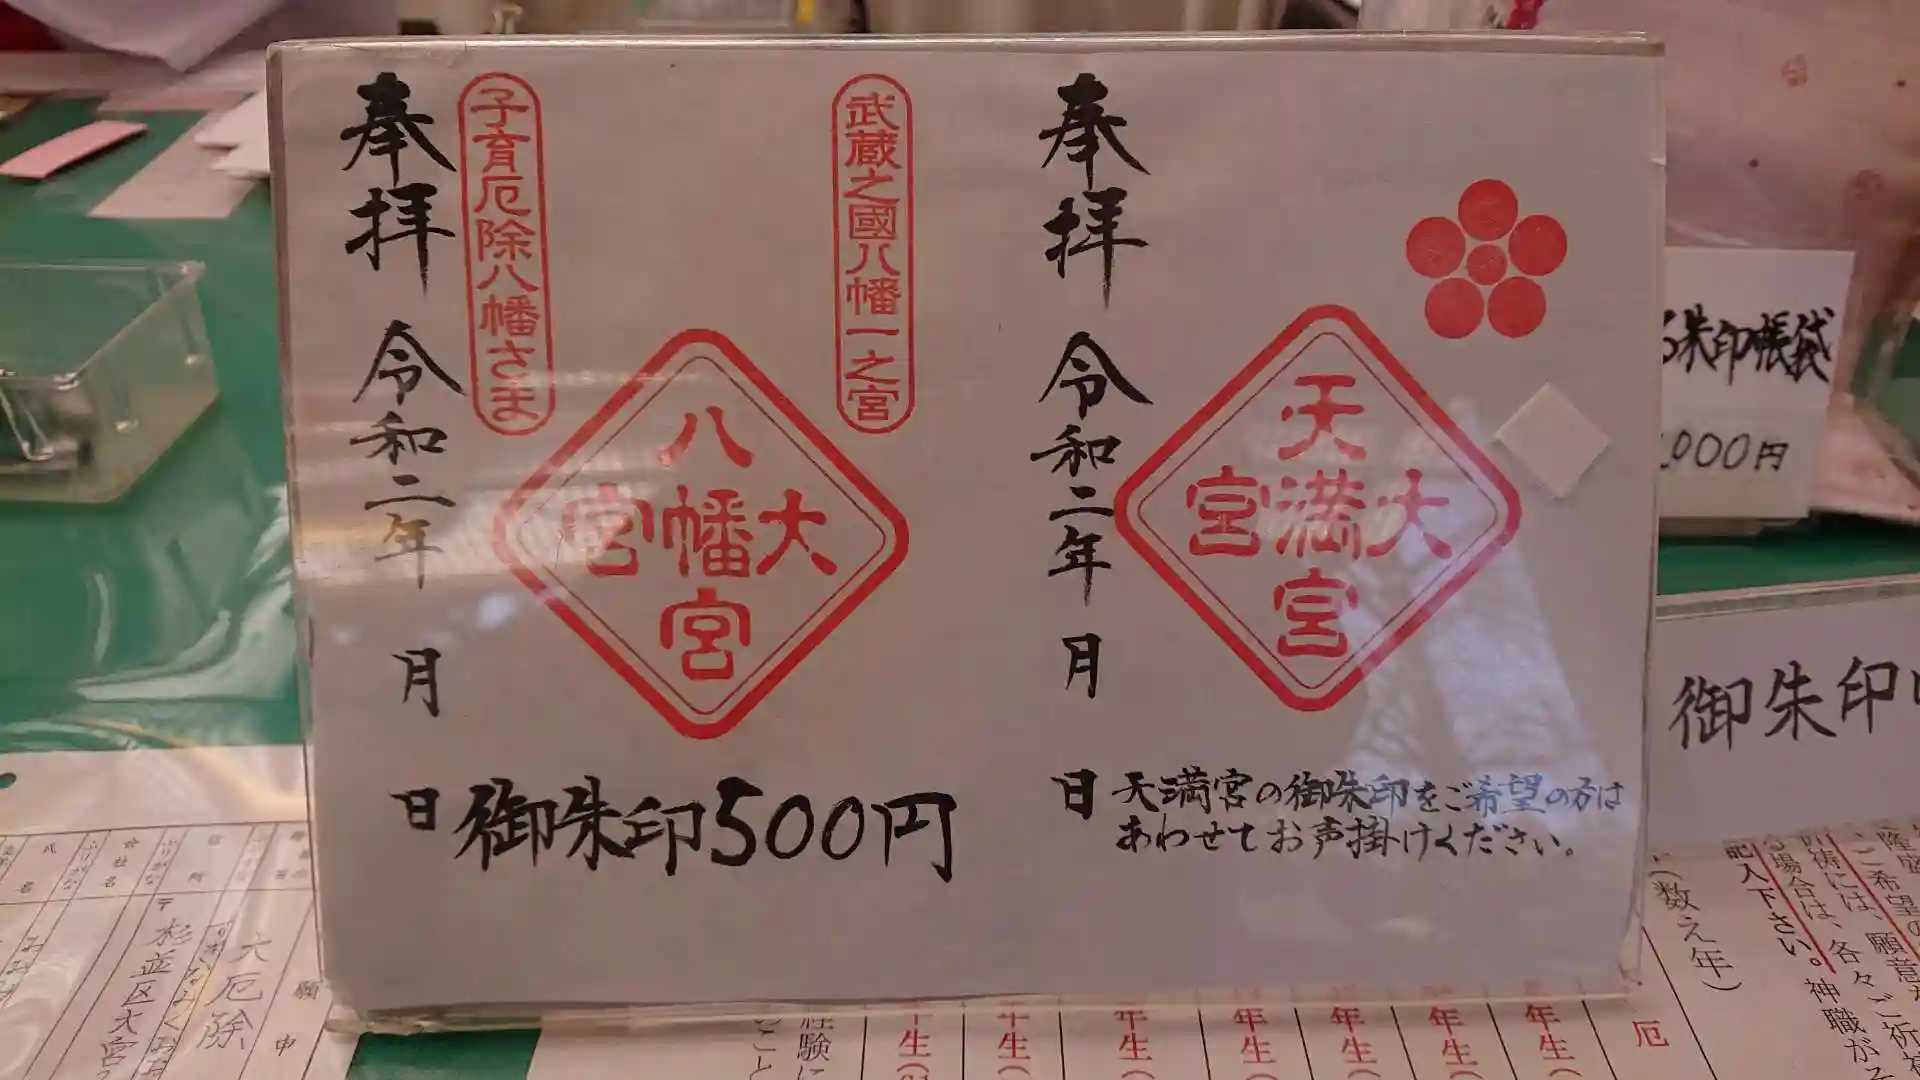 奉拝
令和二年
月
日
子育厄除八幡さま
武蔵之國八幡一之宮
八
宮幡大
宮
御朱印500円
奉拝
令和二年
月
日
天
宮満大
宮
天満宮の御朱印をご希望の方は
あわせてお声掛けください。
朱印帳袋
000円
御朱印
(数え年)
記入下さい。神職が
場合は、各々ご祈
祈祷には、願意
ご希望の
厄
年生(
年生(
年生(
年生(
年生(
年生(
生(
経験に
のこと
願
申
大厄除
杉並区大宮
会社名
氏名
ふりがな